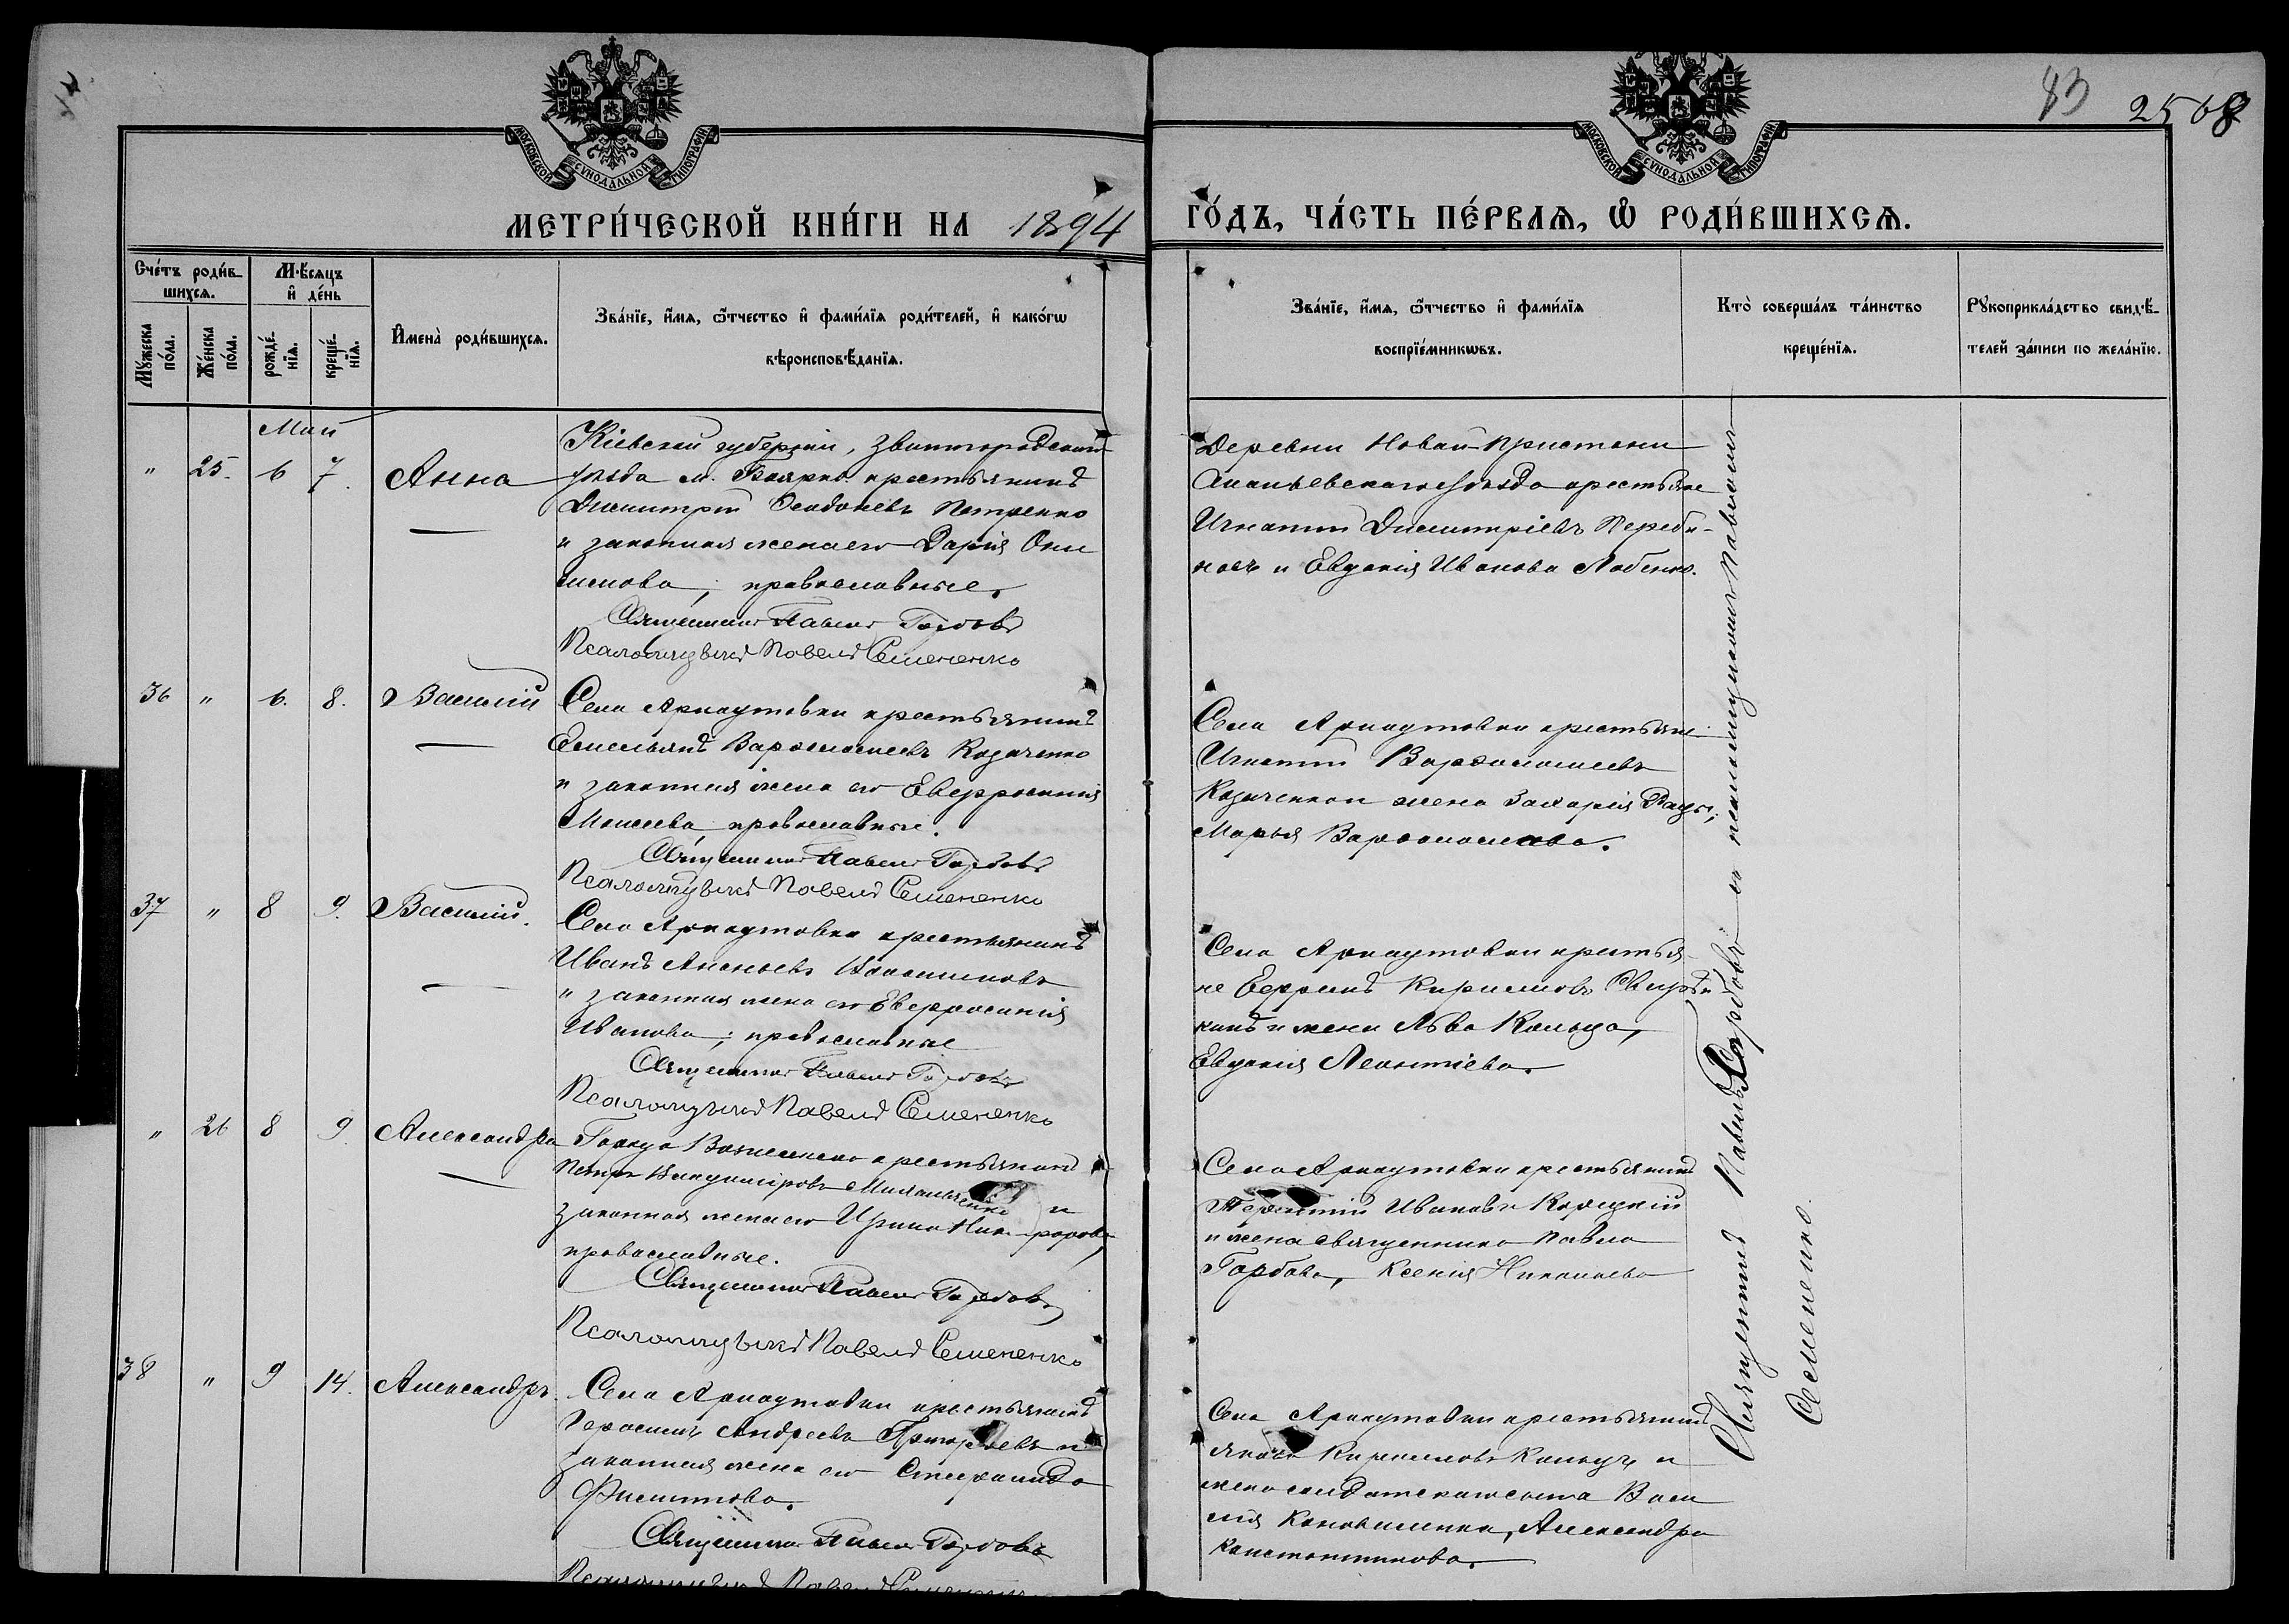 83 2568
МОСКОВСКОЙ СѴНОДАЛЬНОЙ ТИПОГРАФІИ
МОСКОВСКОЙ СѴНОДАЛЬНОЙ ТИПОГРАФІИ
МЕТРИ́ЧЕСКОЙ КНИ́ГИ НА 1894 ГО́ДЪ, ЧА́СТЬ ПЕ́РВАЯ, Ѡ РОДИ́ВШИХСѦ.
Сче́тъ роди́вшихсѧ.
Мꙋжеска по́ла.
Же́нска по́ла.
Мѣ́сяцъ и҆ де́нь
рожде́нїѧ.
креще́нїѧ.
И҆мена̀ роди́вшихсѧ.
Зва́нїе, и҆́мѧ, ѻ҆́тчество и҆ фами́лїѧ роди́телей, и҆ како́гѡ
вѣроисповѣ́данїѧ.
Зва́нїе, и҆́мѧ, ѻ҆́тчество и҆ фами́лїѧ
воспрїе́мникѡвъ.
Кто̀ соверша́лъ та́инство
креще́нїѧ.
Рꙋкоприкла́дство свидѣ́-
телей за́писи по жела́нїю.
Май
" 25. 6 7. Анна
Кіевской губерніи, Звенигородскаго
уѣзда м. Боярка крестьянинъ
Димитрій Петренко
и законная жена его Дарія Они
симова; православные.
Священникъ Павелъ Горбовъ
Псаломщикъ Павелъ Семененко
Деревни Новой-Пристани
Ананьевскаго уѣзда крестьяне
Игнатій Димитріевъ Переби-
носъ и Евдокія Иванова Лобенко.
36 " 6. 8. Василій
Села Арнаутовки крестьянинъ
Емельянъ Варѳоломеевъ Козаченко
и законная жена его Евфросинія
Моисеева, православные.
Священникъ Павелъ Горбовъ
Псаломщикъ Павелъ Семененко
Села Арнаутовки крестьяне
Игнатій Варѳоломеевъ
Козаченко и жена Захарія
Марья Варѳоломеева.
37 " 8 9. Василій.
Села Арнаутовки крестьянинъ
Иванъ Ананьевъ
и законная жена его Евфросинія
Иванова; православные
Священникъ Павелъ Горбовъ
Псаломщикъ Павелъ Семененко
Села Арнаутовки крестья-
не Ефремъ Кириловъ
и жена Льва Кольца,
Евдокія Леонтіева.
" 26 8 9. Александра
Города Вознесенска крестьянинъ
Петръ Владиміровъ Михальченко и
законная жена его Ирина Никифорова,
православные.
Священникъ Павелъ Горбовъ
Псаломщикъ Павелъ Семененко
Села Арнаутовки крестьянинъ
Терентій Ивановъ Корецкій
и жена священника Павла
Горбова, Ксенія Николаева
38 " 9 14. Александръ.
Села Арнаутовки крестьянинъ
Герасимъ Андреевъ Григорьевъ и
законная жена его Степанида
Филиппова.
Священникъ Павелъ Горбовъ
Псаломщикъ Павелъ Семененко
Села Арнаутовки крестьянинъ
Яковъ Кириловъ Кольцъ и
жена солдатскаго сына Васи
лія Коноваленка, Александра
Константинова.
Священникъ Павелъ Горбовъ съ псаломщикомъ Павломъ
Семененко.